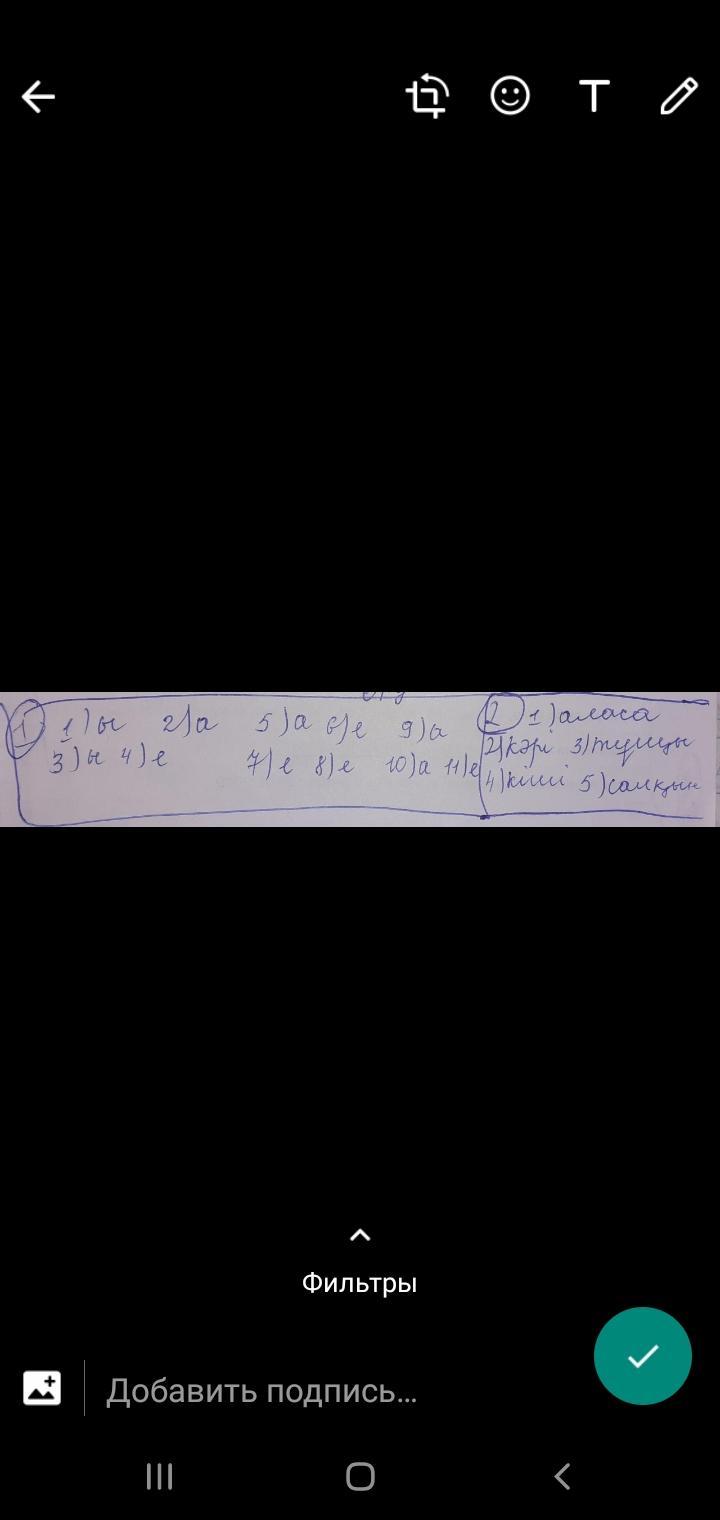 1 1)ы 2)а 5)а 6)е 9)а
3)ы 4)е 7)е 8)е 10)а 11)е
2 1)аласа
2)кәрі 3)тұщы
4)кіші 5)салқын
Фильтры
Добавить подпись...